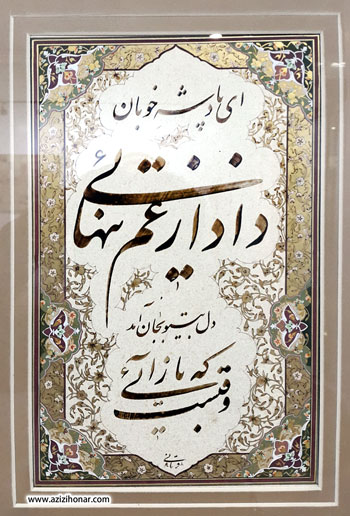 ای پادشه خوبان
داد از غم تنهایی
دل بیتو بجان آمد
وقتست که باز آیی
www.azizihonar.com